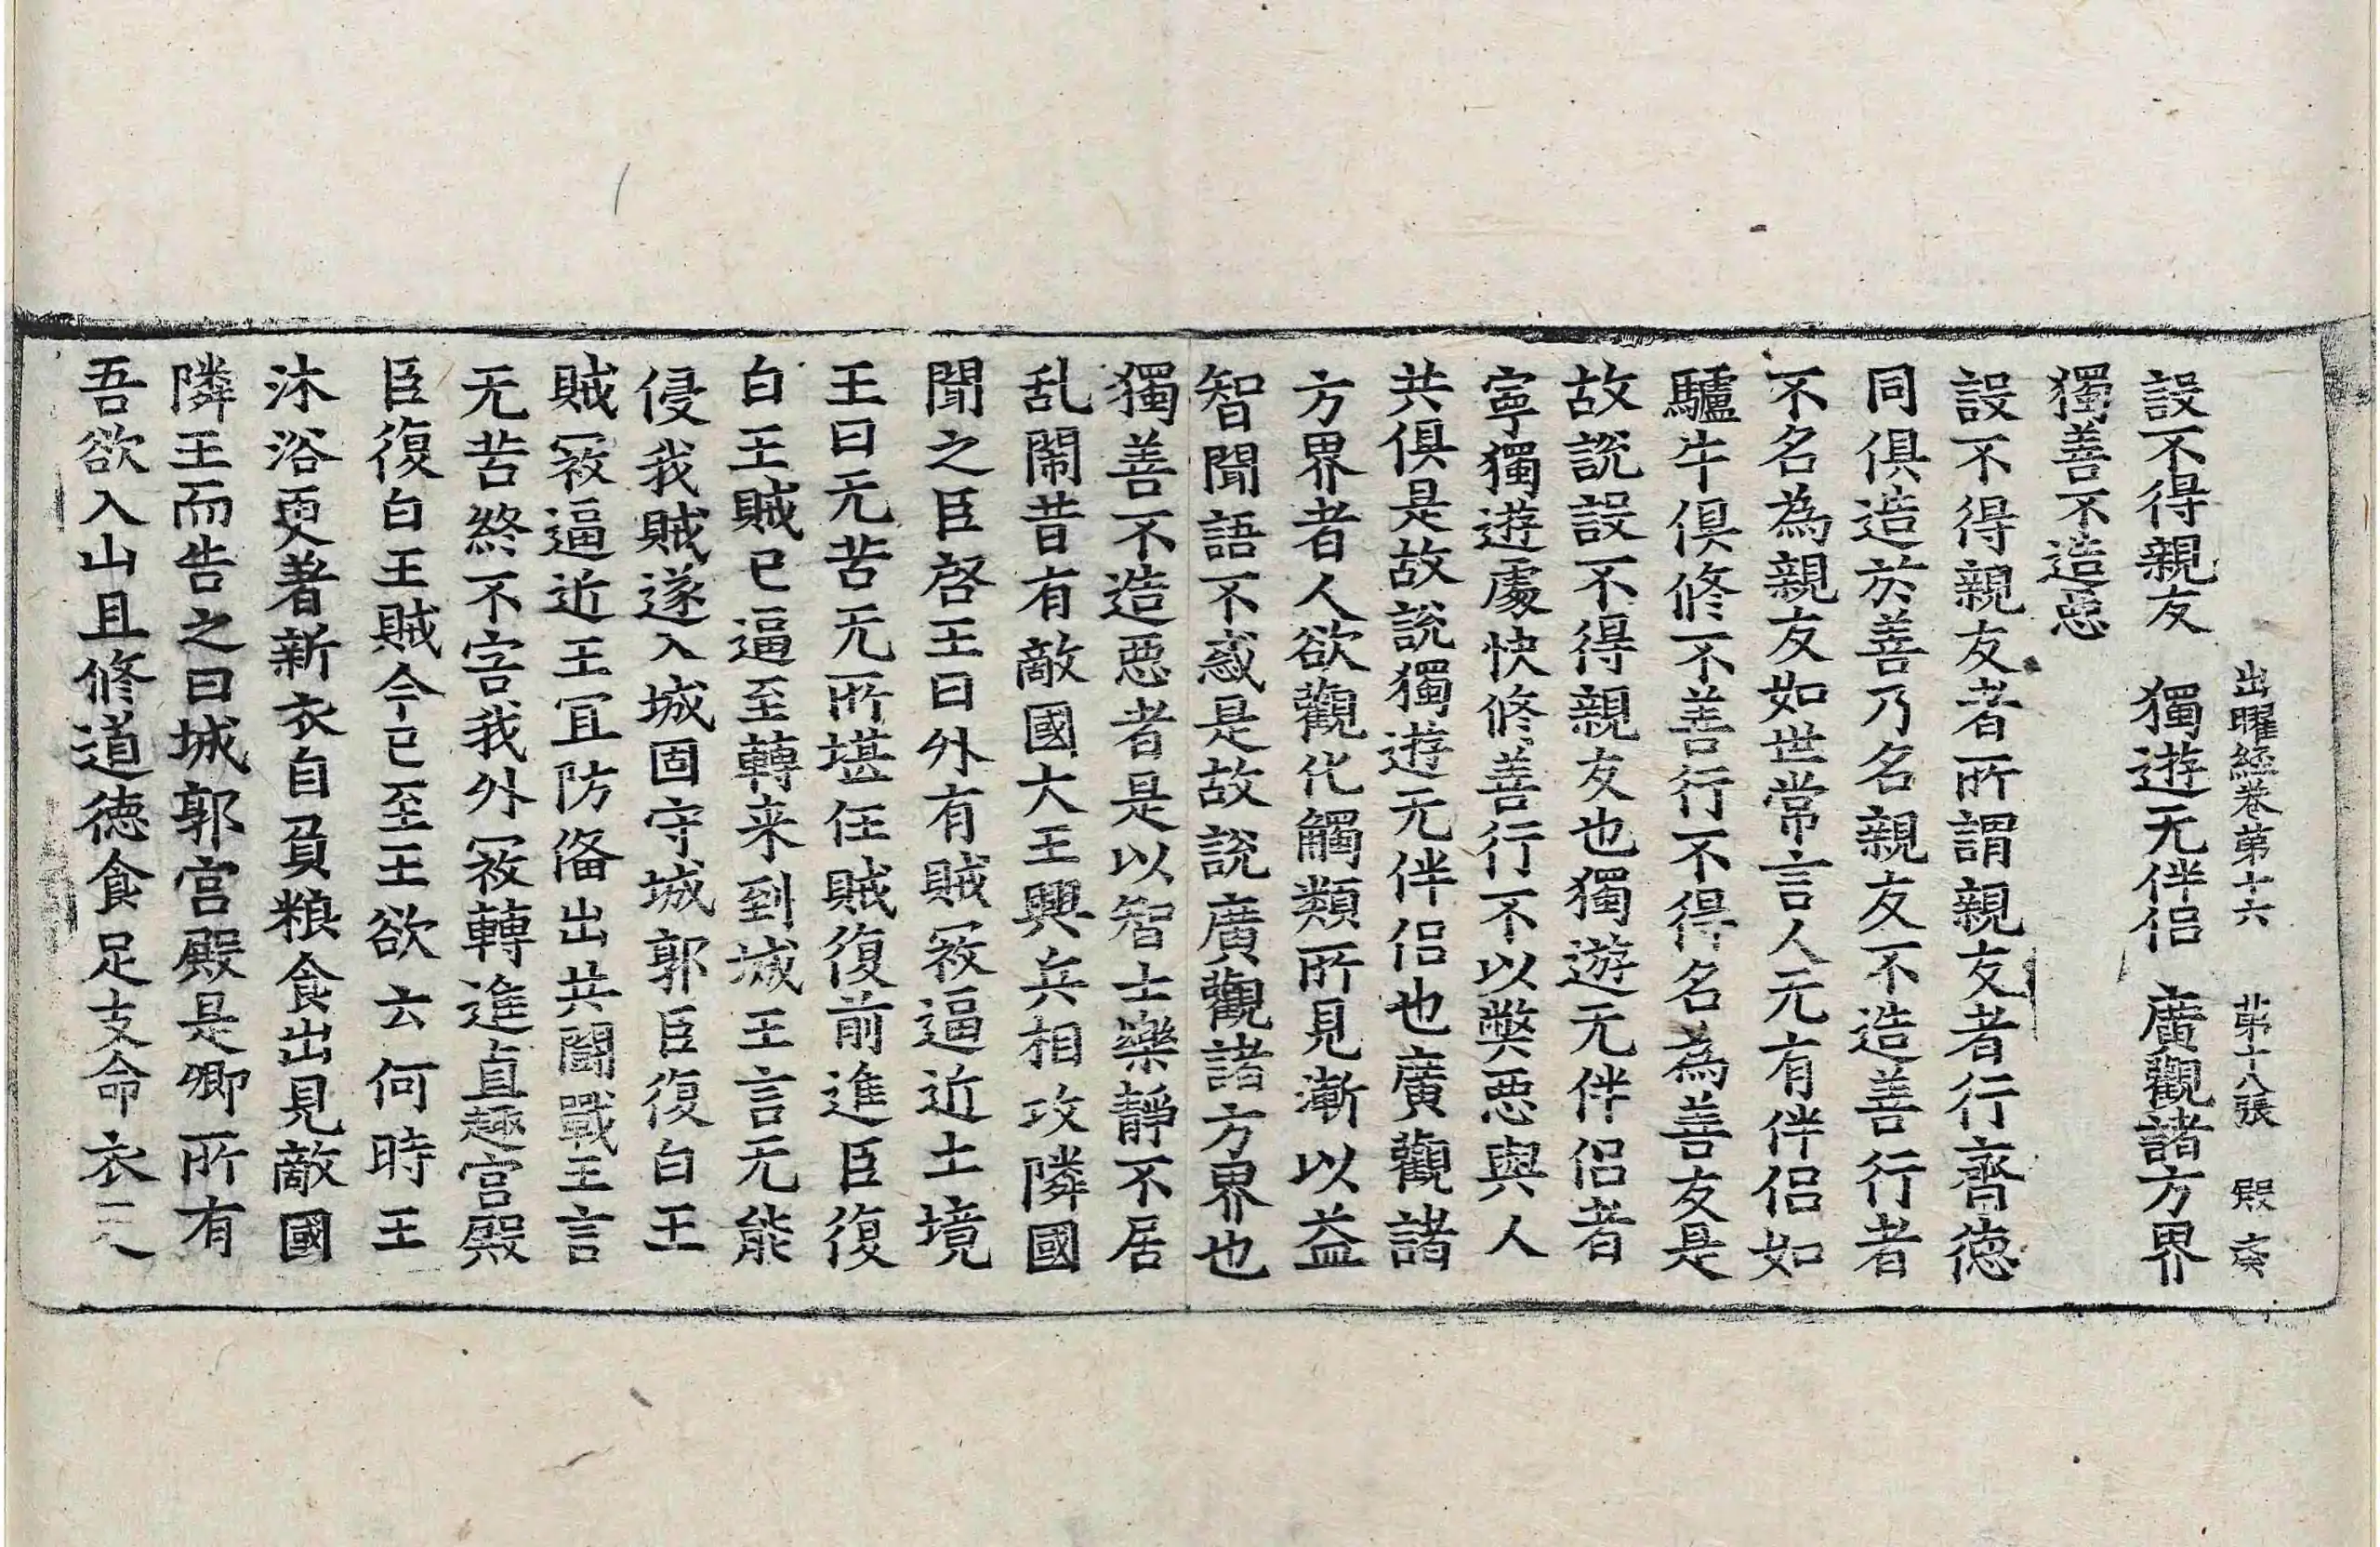 出曜經卷第十六 苐十八張 殿
設不得親友 獨遊无伴侣 廣觀諸方界
獨善不造惡
設不得親友者所謂親友者行齊徳
同俱造於善乃名親友不造善行者
不名為親友如世常言人无有伴侣如
驢牛俱修不善行不得名為善友是
故説設不得親友也獨遊无伴侣者
寧獨遊處快修善行不以弊惡與人
共俱是故説獨遊无伴侣也廣觀諸
方界者人欲觀化觸類所見漸以益
智聞語不惑是故説廣觀諸方界也
獨善不造惡者是以智士樂靜不居
乱鬧昔有敵國大王興兵相攻隣國
聞之臣啓王曰外有賊寇逼近土境
王曰无苦无所堪任賊復前進臣復
白王賊已逼至轉来到城王言无能
侵我賊遂入城固守城郭臣復白王
賊寇逼近王冝防俻出共鬪戰王言
无苦終不害我外寇轉進直趣宫殿
臣復白王賊今已至王欲云何時王
沐浴更著新衣自負粮食出見敵國
隣王而告之曰城郭宫殿是卿所有
吾欲入山且修道徳食足支命衣